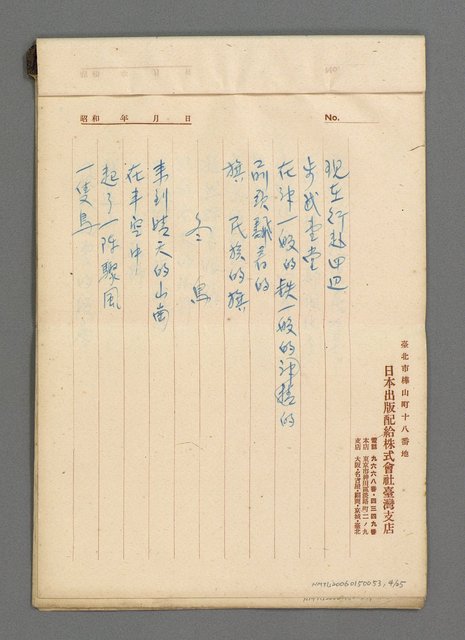 No.
昭和　年　月　日
現在行起四四
步武堂堂
在神一般的鉄一般的神話的
前頭飜着的
旗　民族的旗
冬　鳥
来到晴天的山崗
在半空中
起了一阵驟風
一隻鳥
臺北市樺山町十八番地
日本出版配給株式會社臺灣支店
電話　九六六八番・四三四九番
本店　東京市神田區淡路町二ノ九
支店　大阪・名古屋・福岡・京城・臺北
NMTL20060150053, 4/25